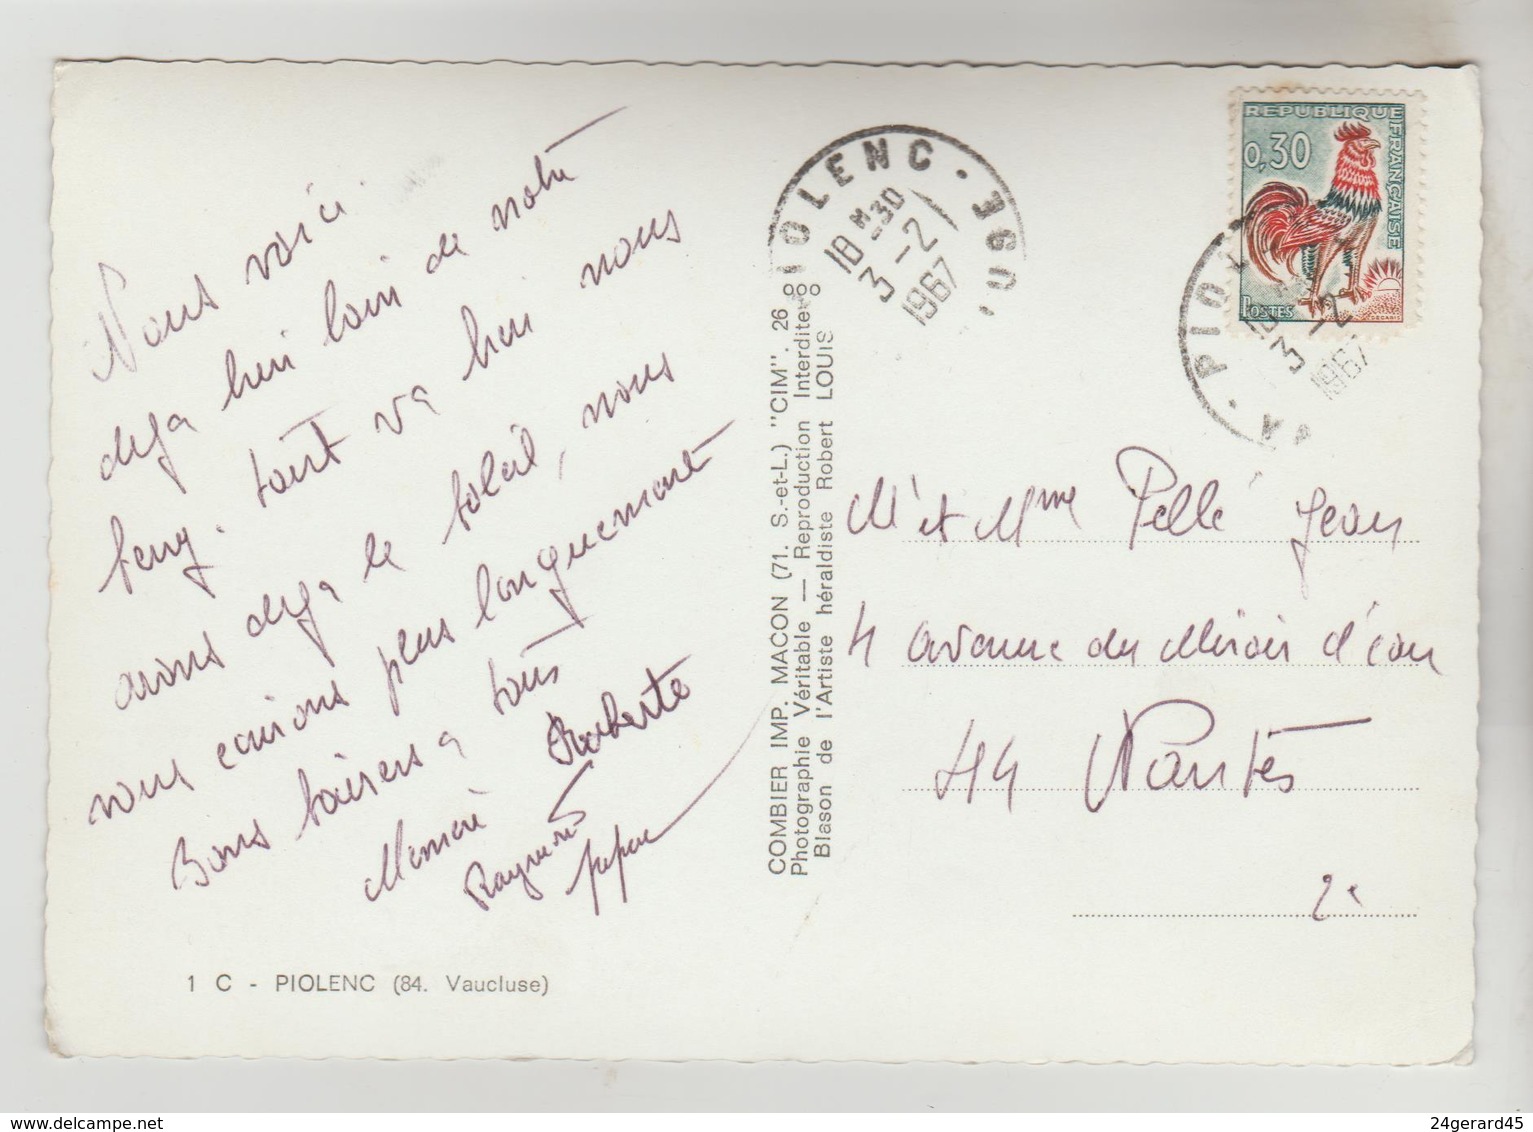 Nous voici
deja bien loin de notre
tout va bien nous
avons deja le soleil, nous
vous ecrirons plus longuement
Bons baisers a tous
Roberte
Memere
Raymond
pepere
1 C - PIOLENC (84. Vaucluse)
COMBIER IMP. MACON (71. S.-et-L.) "CIM". 26 ooo
Photographie Véritable — Reproduction Interdite
Blason de l'Artiste héraldiste Robert LOUIS
PIOLENC
18 H30
3 -2
1967
REPUBLIQUE FRANÇAISE
0,30
POSTES
DECARIS
PIOL
18
3 -2
1967
VA
Mr et Mme Pellé Jean
4 avenue du Miroir d'eau
44 Nantes
24gerard45